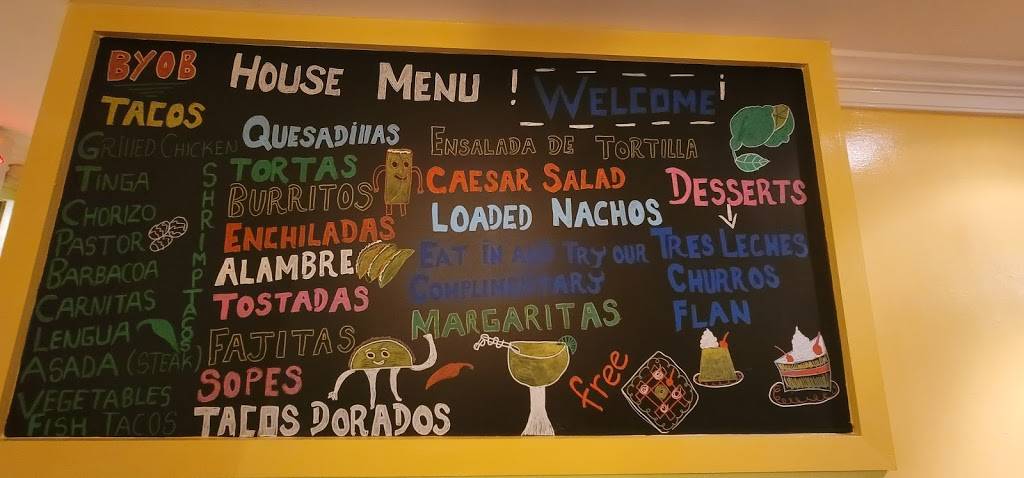 BYOB
HOUSE MENU ! WELCOME!
TACOS
GRILLED CHICKEN
TINGA
CHORIZO
PASTOR
BARBACOA
CARNITAS
LENGUA
ASADA (STEAK)
VEGETABLES
FISH TACOS
SHRIMP TACOS
QUESADILLAS
TORTAS
BURRITOS
ENCHILADAS
ALAMBRE
TOSTADAS
FAJITAS
SOPES
TACOS DORADOS
ENSALADA DE TORTILLA
CAESAR SALAD
LOADED NACHOS
EAT IN AND TRY OUR
COMPLIMENTARY
MARGARITAS
free
DESSERTS
TRES LECHES
CHURROS
FLAN